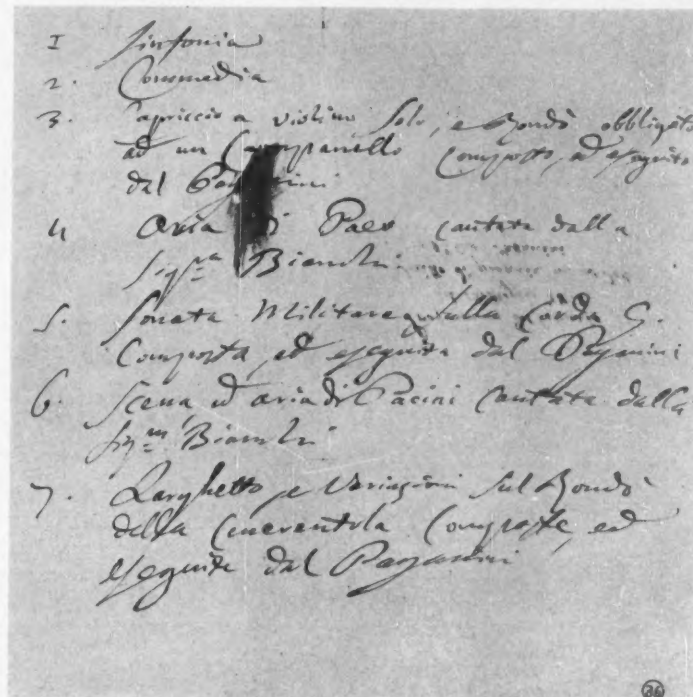 1 Sinfonia
2. Commedia
3. Capriccio a violino Solo, e Rondò obbligato
ad un Campanello composto, ed eseguito
dal Paganini
4 Aria di Paer cantata dalla
Sigra Bianchi
5. Sonata Militare sulla Corda G.
Composta, ed eseguita dal Paganini
6. Scena ed aria di Pacini Cantata dalla
Sigra Bianchi
7. Larghetto, e Variazioni sul Rondò
della Cenerentola Composte, ed
eseguite dal Paganini
26